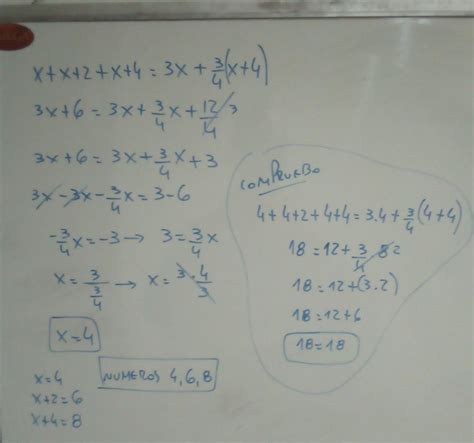 x+x+2+x+4=3x+3/4(x+4)
3x+6=3x+3/4x+12/4 3
3x+6=3x+3/4x+3
3x-3x-3/4x=3-6
-3/4x=-3→ 3=3/4x
x=3/(3/4) → x=3·4/3
x=4
x=4
x+2=6
x+4=8
NUMEROS 4,6,8
COMPRUEBO
4+4+2+4+4=3.4+3/4(4+4)
18=12+3/4·8 2
18=12+(3.2)
18=12+6
18=18